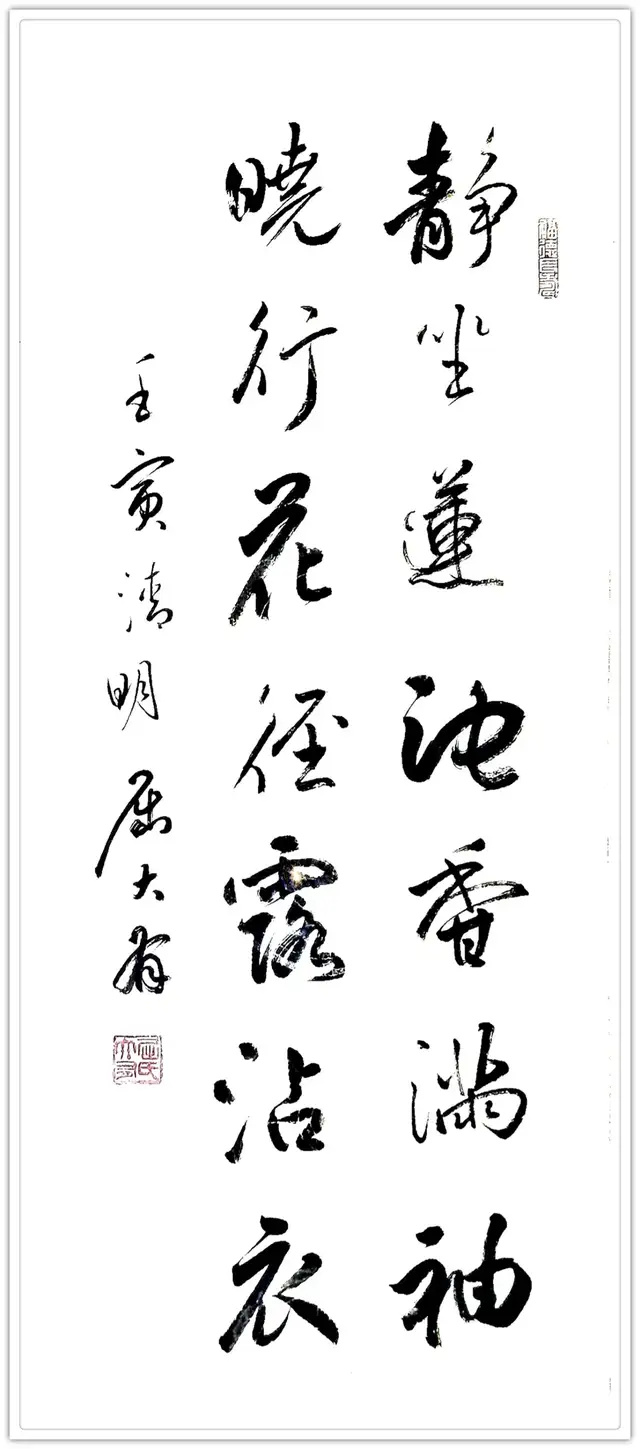 静坐蓮池香滿袖
曉行花径露沾衣
壬寅清明屈大有